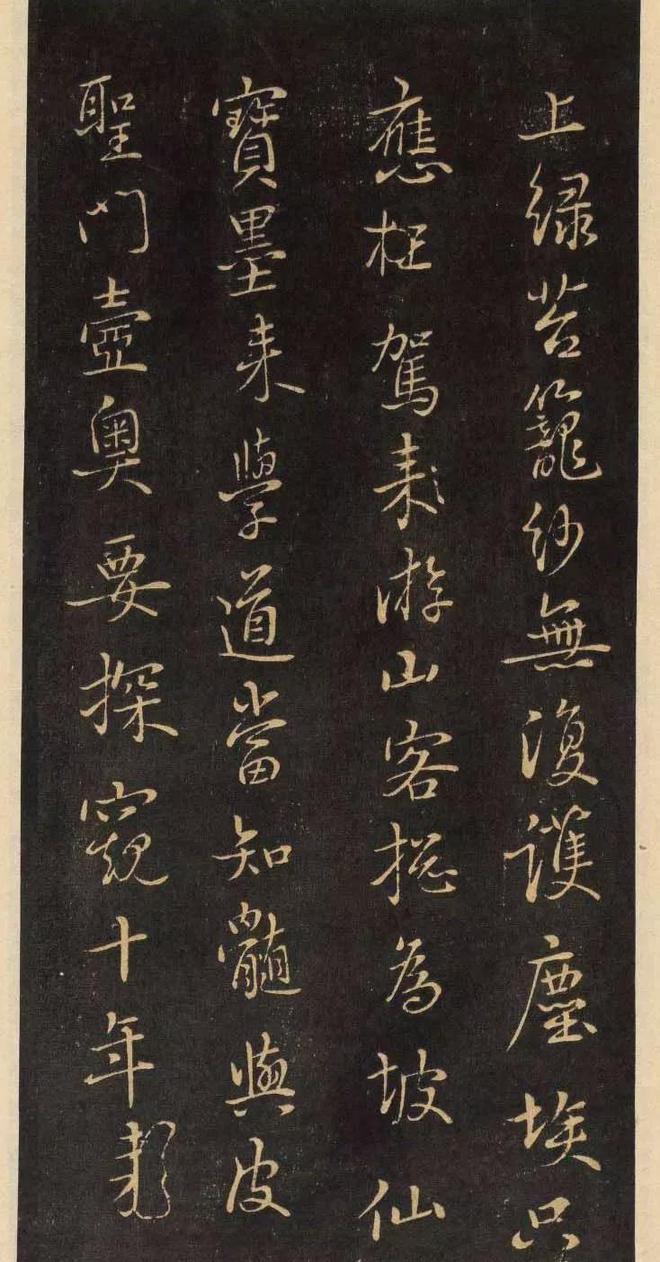 上緑苔籠紗無復護塵埃只
應枉駕来游山客摠為坡仙
寶墨来學道當知髓與皮
聖門壼奧要探窺十年